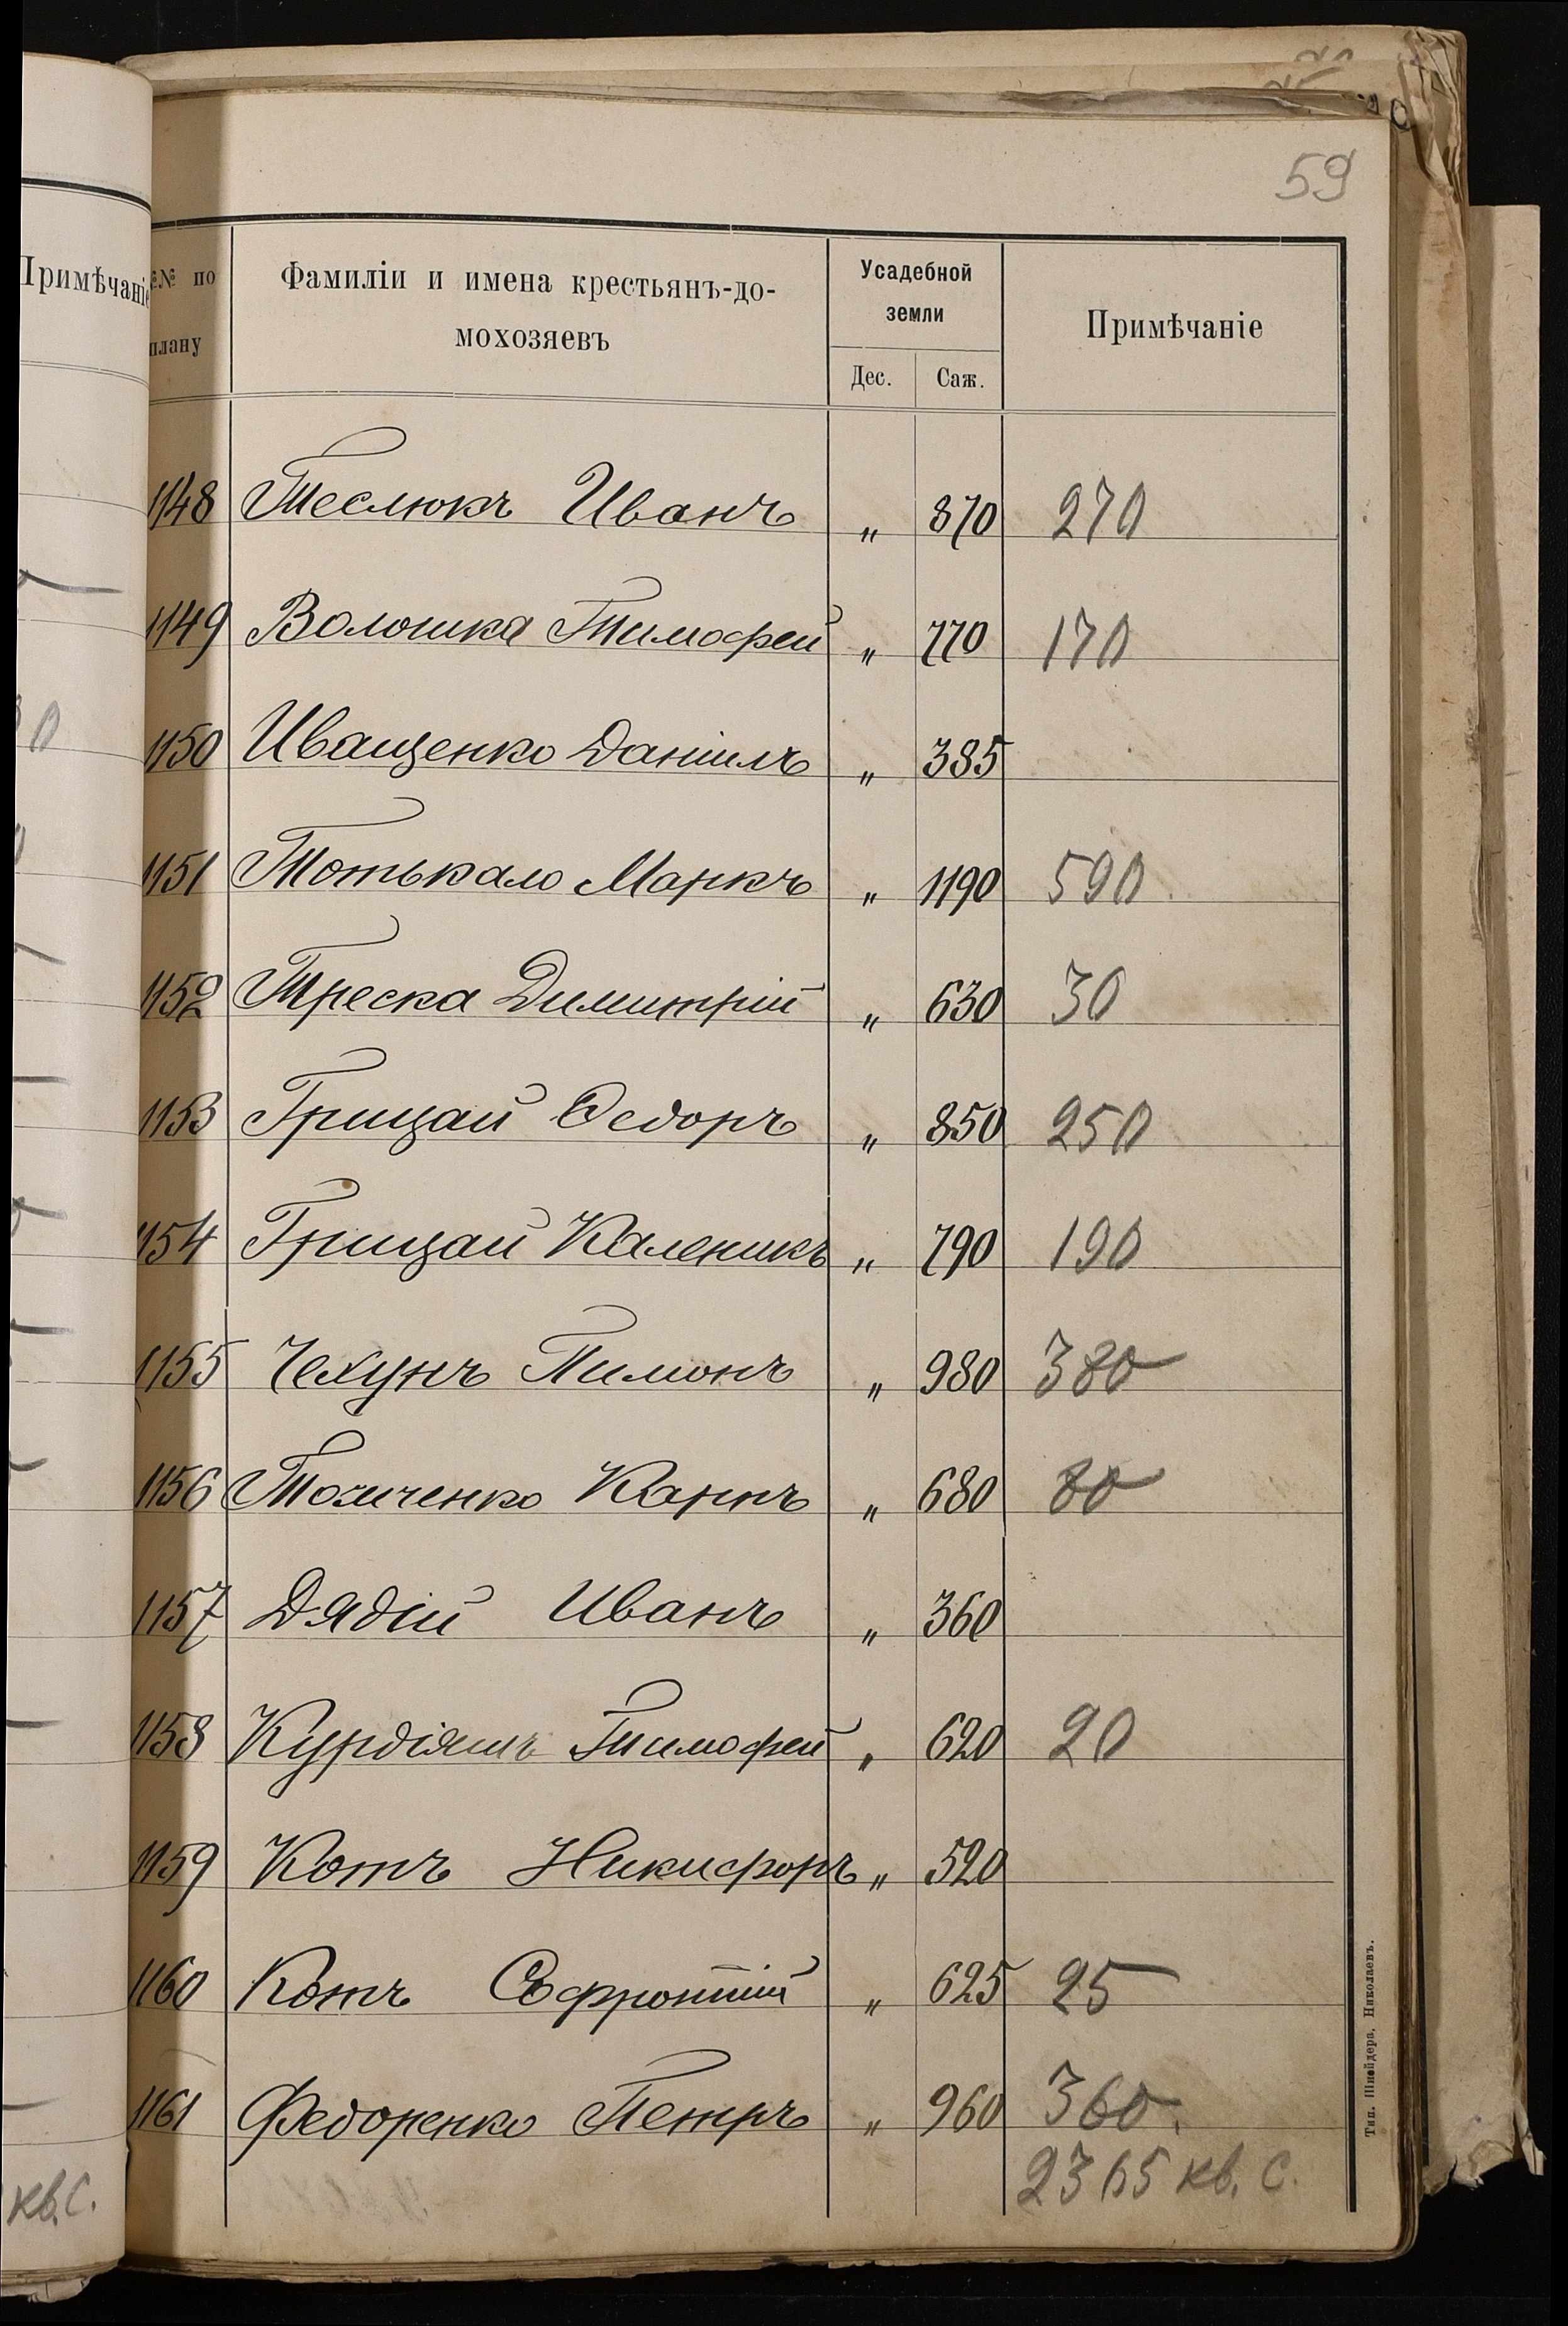 59
Примѣчаніе
№№ по плану
Фамиліи и имена крестьянъ-до-
мохозяевъ
Усадебной
земли
Дес. Саж.
Примѣчаніе
1148 Теслюкъ Иванъ „ 870 270
1149 Волошка Тимофей „ 770 170
1150 Иващенко Даніилъ „ 385
1151 Тотькало Маркъ „ 1190 590
1152 Треска Димитрій „ 630 30
1153 Грицай Ѳедоръ „ 850 250
1154 Грицай Каленикъ „ 790 190
1155 Чехунъ Пимонъ „ 980 380
1156 Карпъ „ 680 80
1157 Дядій Иванъ „ 360
1158 Тимофей „ 620 20
1159 Котъ Никифоръ „ 520
1160 Котъ Софроній „ 625 25
1161 Федоренко Петръ „ 960 360.
2365 кв. с.
кв. с.
Тип. Шнейдера, Николаевъ.